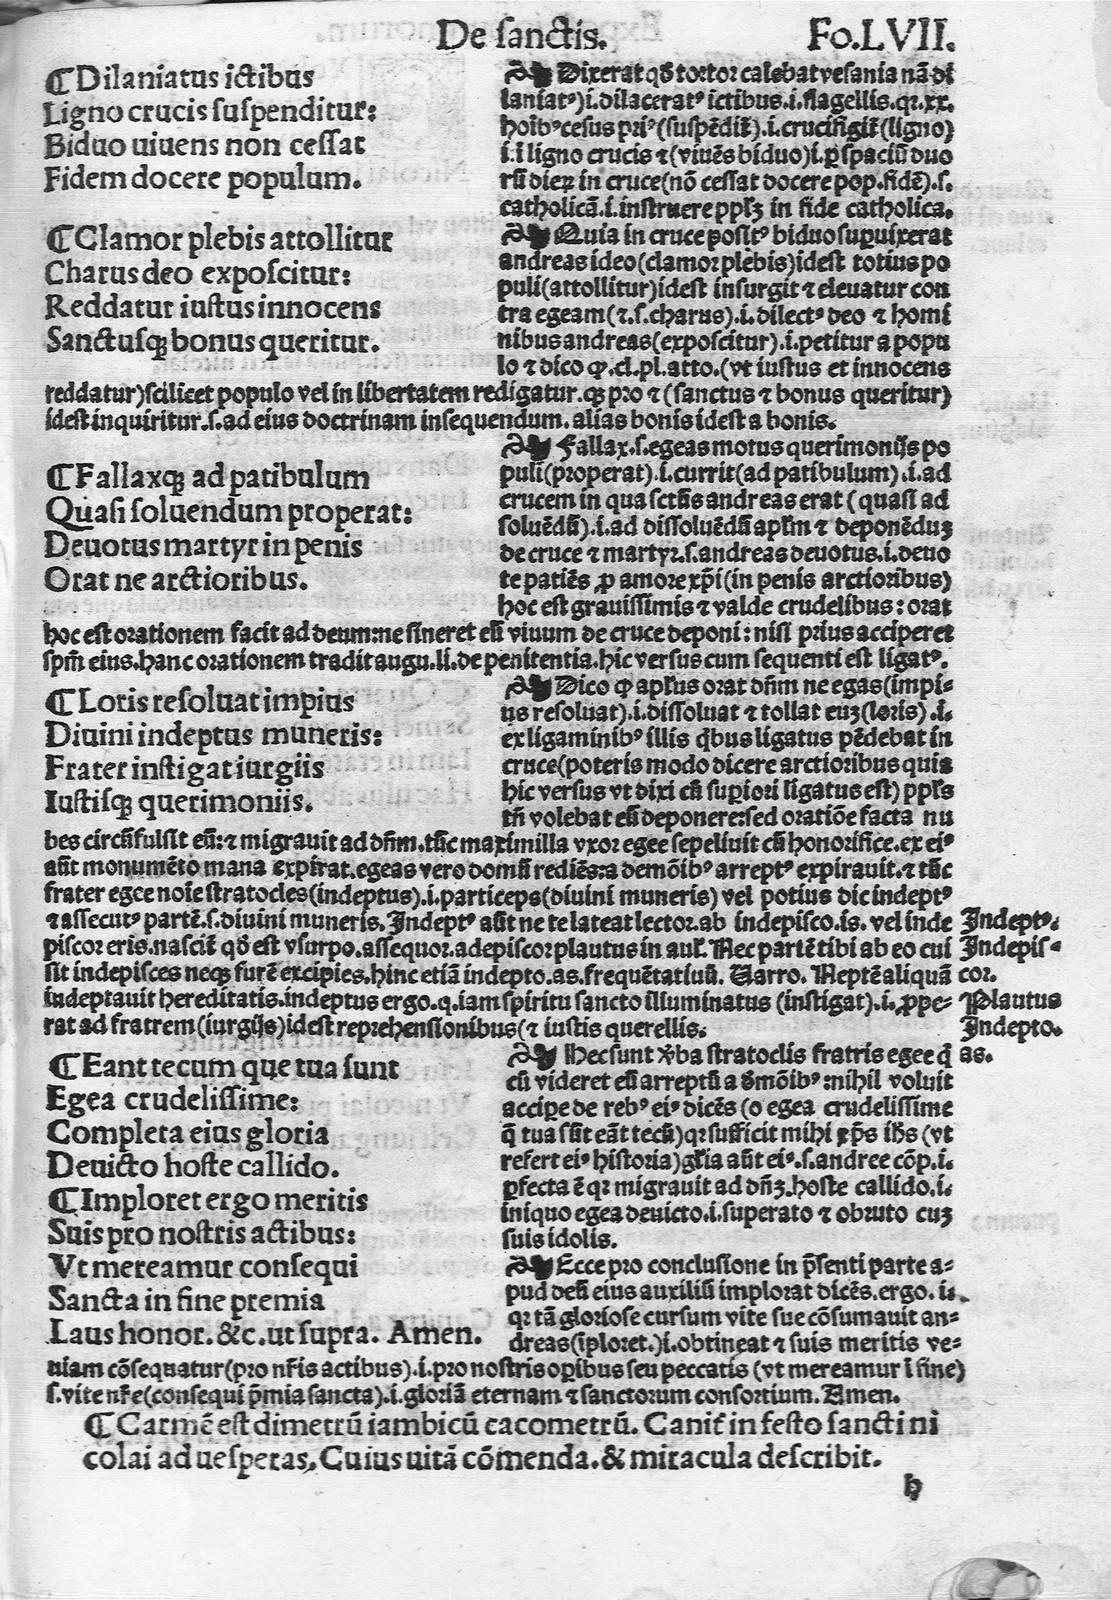 De sanctis. Fo.LVII.
¶ Dilaniatus ictibus
Ligno crucis suspenditur:
Biduo uiuens non cessat
Fidem docere populum.
Dixerat qđ tortor calebat vesania nā di
laniatꝰ).i.dilaceratꝰ ictibus.i.flagellis.qꝛ.xx.
hoībꝰ cesus priꝰ (suspēdit᷑).i.crucifigit᷑ (ligno)
i.ī ligno crucis ⁊ (viuēs biduo).i.ꝑ spaciū duo
rū dieꝝ in cruce (nō cessat docere pop.fidē).s.
catholicā.i.instruere ppl'ꝫ in fide catholica.
¶ Clamor plebis attollitur
Charus deo exposcitur:
Reddatur iustus innocens
Sanctusqꝫ bonus queritur.
Quia in cruce positꝰ biduo supuixerat
andreas ideo (clamor plebis) idest totius po
puli (attollitur) idest insurgit ⁊ eleuatur con
tra egeam (⁊.s.charus).i.dilectꝰ deo ⁊ homi
nibus andreas (exposcitur).i.petitur a popu
lo ⁊ dico ꝙ.cl.pl.atto.(vt iustus et innocens
reddatur) scilicet populo vel in libertatem redigatur.qꝫ pro ⁊ (sanctus ⁊ bonus queritur)
idest inquiritur.s.ad eius doctrinam insequendum. alias bonis idest a bonis.
¶ Fallaxqꝫ ad patibulum
Quasi soluendum properat:
Deuotus martyr in penis
Orat ne arctioribus.
Fallax.s.egeas motus querimonijs po
puli (properat).i.currit (ad patibulum).i.ad
crucem in qua sctūs andreas erat (quasi ad
soluēdū).i.ad dissoluēdū apl'm ⁊ deponēduꝫ
de cruce ⁊ martyr.s.andreas deuotus.i.deuo
te patiēs ꝓ amore xp̄i (in penis arctioribus)
hoc est grauissimis ⁊ valde crudelibus: orat
hoc est orationem facit ad deum: ne sineret eū viuum de cruce deponi: nisi prius acciperet
spm̄ eius. hanc orationem tradit augu.li.de penitentia. hic versus cum sequenti est ligatꝰ.
¶ Loris resoluat impius
Diuini indeptus muneris:
Frater instigat iurgiis
Iustisqꝫ querimoniis.
Dico ꝙ apl'us orat dn̄m ne egas (impi-
us resoluat).i.dissoluat ⁊ tollat euꝫ (loris).i.
ex ligaminibꝰ illis q̄bus ligatus pēdebat in
cruce (poteris modo dicere arctioribus quia
hic versus vt dixi cū superiori ligatus est) ppl's
tn̄ volebat eū deponere: sed oratiōe facta nu
bes circūfulsit eū: ⁊ migrauit ad dn̄m. tūc maximilla vxor egee sepeliuit eū honorifice. ex eiꝰ
aūt monumēto mana expirat. egeas vero domū rediēs: a demōibꝰ arreptꝰ expirauit. ⁊ tūc
frater egee noīe stratocles (indeptus).i.particeps (diuini muneris) vel potius dic indeptꝰ
⁊ assecutꝰ partē.s.diuini muneris. Indeptꝰ aūt ne te lateat lector. ab indepisco.is. vel inde
piscor eris. nascit᷑ qđ est vsurpo. assequor. adepiscor plautus in aul. Nec partē tibi ab eo cui
sit indepisces neqꝫ furē excipies. hinc etiā indepto.as. frequētatiuū. Varro. Neptē aliquā
indeptauit hereditatis. indeptus ergo.q.iam spiritu sancto illuminatus (instigat).i.ꝓpe-
rat ad fratrem (iurgijs) idest reprehensionibus (⁊ iustis querellis.
Indeptꝰ.
Indepis-
cor.
Plautus
Indepto.
as.
¶ Eant tecum que tua sunt
Egea crudelissime:
Completa eius gloria
Deuicto hoste callido.
Hec sunt ꝟba stratoclis fratris egee q̄
cū videret eū arreptū a demōibꝰ: nihil voluit
accipe de rebꝰ eiꝰ dicēs (o egea crudelissime
q̄ tua sūt eāt tecū) qꝛ sufficit mihi xp̄s ih̄s (vt
refert eiꝰ historia) gl'ia aūt eiꝰ.s.andree cōp.i.
ꝑfecta ē qꝛ migrauit ad dn̄ꝫ. hoste callido.i.
iniquo egea deuicto.i.superato ⁊ obruto cuꝫ
suis idolis.
¶ Imploret ergo meritis
Suis pro nostris actibus:
Vt mereamur consequi
Sancta in fine premia
Laus honor. &c. ut supra. Amen.
Ecce pro conclusione in p̄senti parte a-
pud deū eius auxiliū implorat dicēs. ergo.i.
qꝛ tā gloriose cursum vite sue cōsumauit an-
dreas (īploret.).i.obtineat ⁊ suis meritis ve-
niam cōsequatur (pro nr̄is actibus).i.pro nostris oꝑibus seu peccatis (vt mereamur ī fine)
s.vite nr̄e (consequi p̄mia sancta).i.gloriā eternam ⁊ sanctorum consortium. Amen.
¶ Carmē est dimetrū iambicū cacometrū. Canit᷑ in festo sancti ni
colai ad uesperas, Cuius uitā cōmenda. & miracula describit.
h